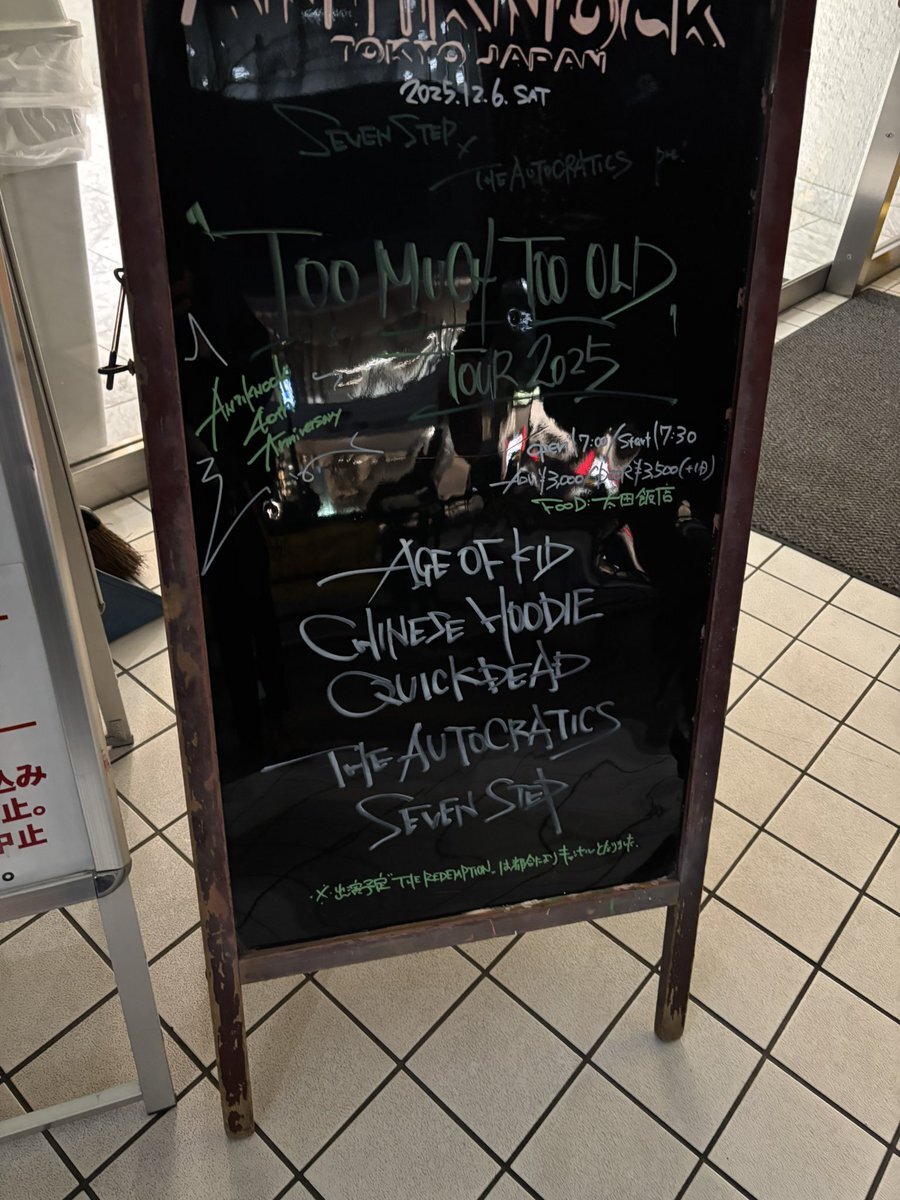 ANTIKNOCK
TOKYO JAPAN
2025.12.6. SAT
SEVEN STEP x
THE AUTOCRATICS pre.
"TOO MUCH TOO OLD"
TOUR 2025
ANTIKNOCK
40th
Anniversary
open 17:00/Start 17:30
ADV ¥3,000- DOOR ¥3,500(+1D)
FOOD:太田飯店
AGE OF KID
CHINESE HOODIE
QUICKDEAD
THE AUTOCRATICS
SEVEN STEP
※出演予定"THE REDEMPTION"は都合によりキャンセルとなりました。
込み
止。
中止